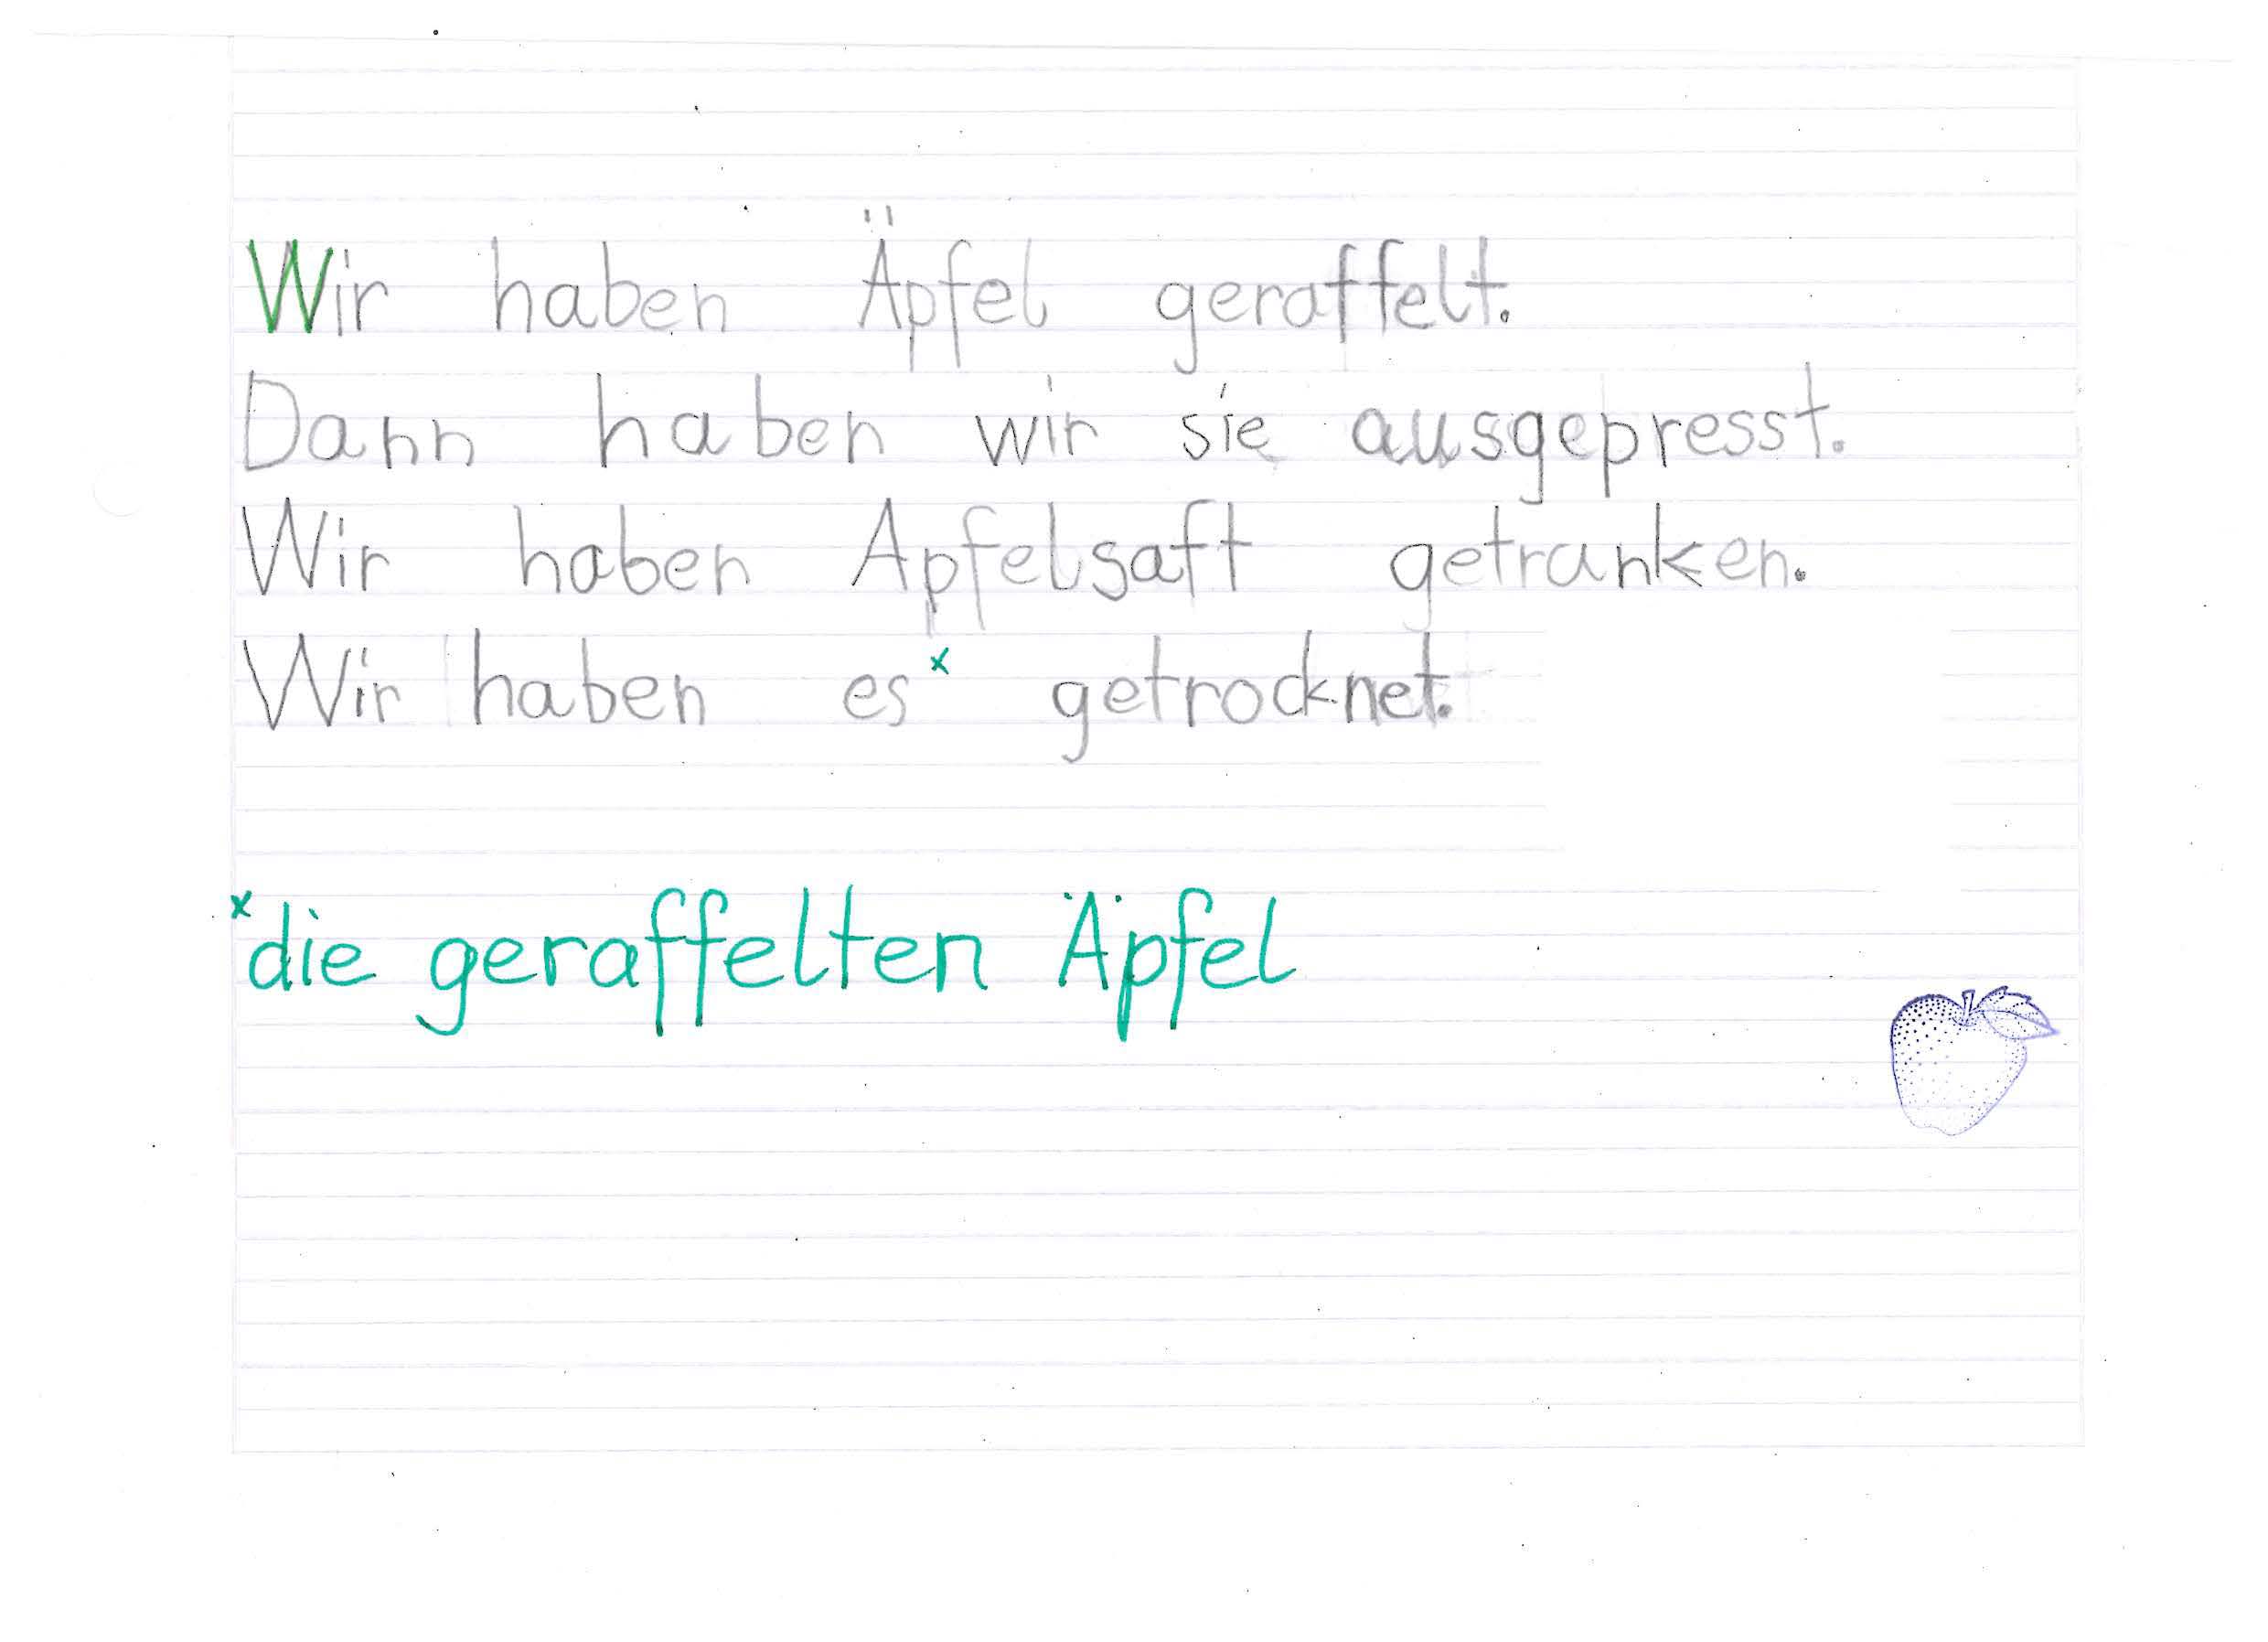 Wir haben Äpfel geraffelt.
Dann haben wir sie ausgepresst.
Wir haben Apfelsaft getranken.
Wir haben es* getrocknet.
*die geraffelten Äpfel